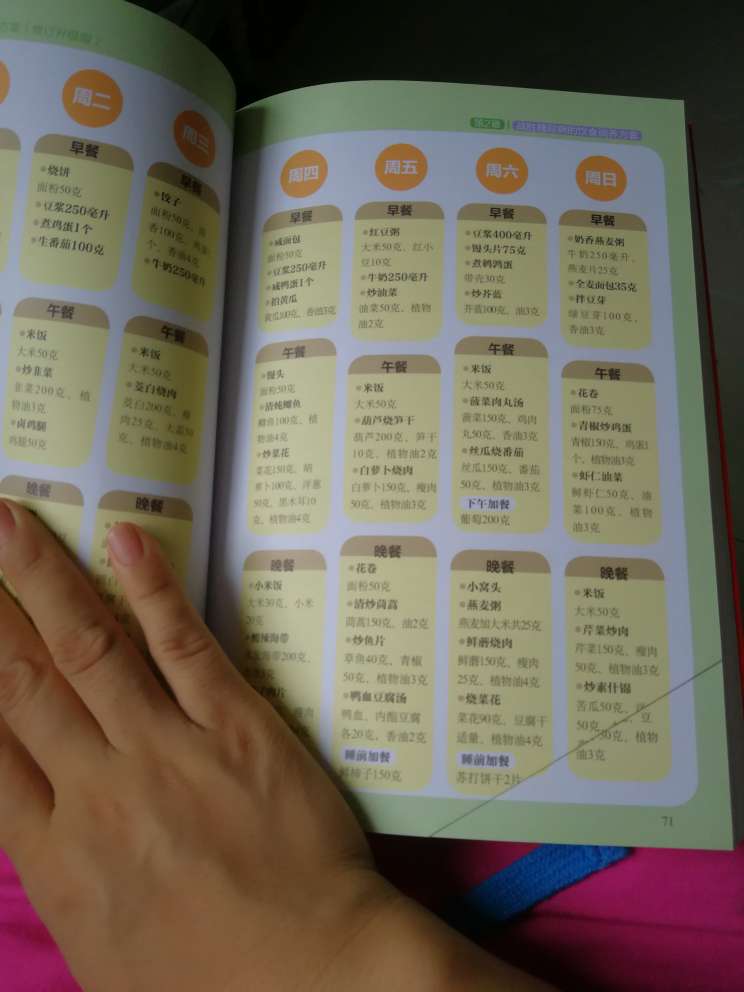 周二
早餐
烧饼
面粉50克
豆浆250毫升
煮鸡蛋1个
生番茄100克
午餐
米饭
大米50克
炒韭菜
韭菜200克、植
物油3克
卤鸡腿
鸡腿50克
晚餐
周三
早餐
饺子
牛奶250毫升
午餐
米饭
大米50克
茭白烧肉
茭白200克、瘦
肉25克、大葱50
克、植物油4克
晚餐
第2章
周四
早餐
咸面包
面粉50克
豆浆250毫升
咸鸭蛋1个
拍黄瓜
黄瓜100克、香油3克
午餐
馒头
面粉50克
清炖鲫鱼
鲫鱼100克、植
物油4克
炒菜花
菜花150克、胡
萝卜100克、洋葱
50克、黑木耳10
克、植物油4克
晚餐
小米饭
大米30克、小米
20克
海带200克、
周五
早餐
红豆粥
大米50克、红小
豆10克
牛奶250毫升
炒油菜
油菜50克、植物
油2克
午餐
米饭
大米50克
葫芦烧笋干
葫芦200克、笋干
10克、植物油2克
白萝卜烧肉
白萝卜150克、瘦肉
50克、植物油3克
晚餐
花卷
面粉50克
清炒茼蒿
茼蒿150克、油2克
炒鱼片
草鱼40克、青椒
50克、植物油3克
鸭血豆腐汤
鸭血、内酯豆腐
各20克、香油2克
睡前加餐
柿子150克
周六
早餐
豆浆400毫升
馒头片75克
煮鹌鹑蛋
带壳30克
炒芥蓝
芥蓝100克、油3克
午餐
米饭
大米50克
菠菜肉丸汤
菠菜150克、鸡肉
丸50克、香油3克
丝瓜烧番茄
丝瓜150克、番茄
50克、植物油3克
下午加餐
葡萄200克
晚餐
小窝头
燕麦粥
燕麦加大米共25克
鲜蘑烧肉
鲜蘑150克、瘦肉
25克、植物油4克
烧菜花
菜花90克、豆腐干
适量、植物油4克
睡前加餐
苏打饼干2片
周日
早餐
奶香燕麦粥
牛奶250毫升、
燕麦片25克
全麦面包35克
拌豆芽
绿豆芽100克、
香油3克
午餐
花卷
面粉75克
青椒炒鸡蛋
青椒150克、鸡蛋1
个、植物油3克
虾仁油菜
鲜虾仁50克、油
菜100克、植物
油3克
晚餐
米饭
大米50克
芹菜炒肉
芹菜150克、瘦肉
50克、植物油3克
炒素什锦
苦瓜50克、
30克、植物
油3克
71